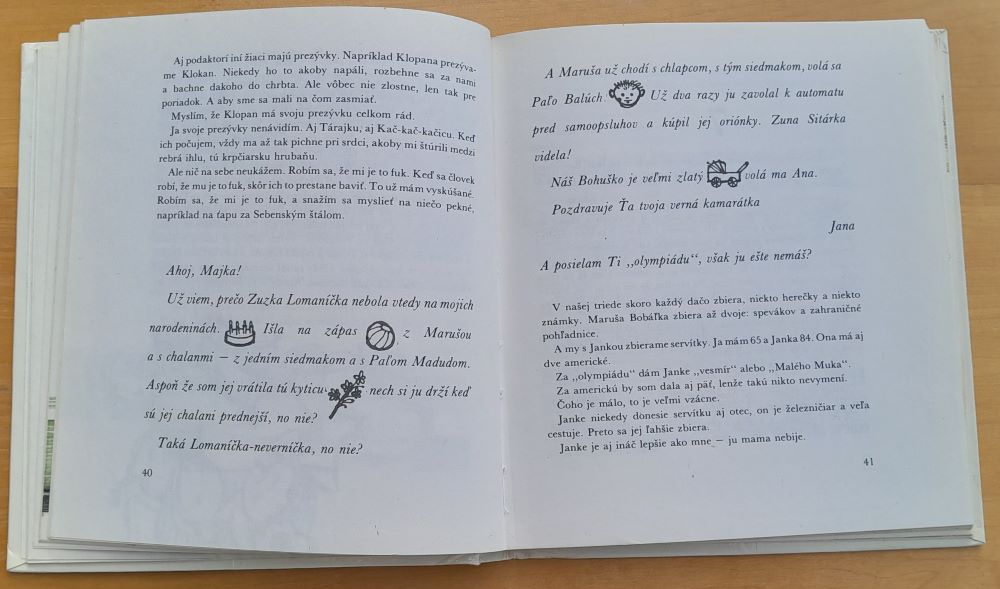 Aj podaktorí iní žiaci majú prezývky. Napríklad Klopana prezýva-
me Klokan. Niekedy ho to akoby napáli, rozbehne sa za nami
a bachne dakoho do chrbta. Ale vôbec nie zlostne, len tak pre
poriadok. A aby sme sa mali na čom zasmiať.
Myslím, že Klopan má svoju prezývku celkom rád.
Ja svoje prezývky nenávidím. Aj Tárajku, aj Kač-kač-kačicu. Keď
ich počujem, vždy ma až tak pichne pri srdci, akoby mi štúrili medzi
rebrá ihlu, tú krpčiarsku hrubaňu.
Ale nič na sebe neukážem. Robím sa, že mi je to fuk. Keď sa človek
robí, že mu je to fuk, skôr ich to prestane baviť. To už mám vyskúšané.
Robím sa, že mi je to fuk, a snažím sa myslieť na niečo pekné,
napríklad na ťapu za Sebenským štálom.
Ahoj, Majka!
Už viem, prečo Zuzka Lomaníčka nebola vtedy na mojich
narodeninách. Išla na zápas z Marušou
a s chalanmi — z jedním siedmakom a s Paľom Madudom.
Aspoň že som jej vrátila tú kyticu nech si ju drží keď
sú jej chalani prednejší, no nie?
Taká Lomaníčka-neverníčka, no nie?
40
A Maruša už chodí s chlapcom, s tým siedmakom, volá sa
Paľo Balúch. Už dva razy ju zavolal k automatu
pred samoopsluhov a kúpil jej oriónky. Zuna Sitárka
videla!
Náš Bohuško je veľmi zlatý volá ma Ana.
Pozdravuje Ťa tvoja verná kamarátka
Jana
A posielam Ti „olympiádu“, však ju ešte nemáš?
V našej triede skoro každý dačo zbiera, niekto herečky a niekto
známky. Maruša Bobáľka zbiera až dvoje: spevákov a zahraničné
pohľadnice.
A my s Jankou zbierame servítky. Ja mám 65 a Janka 84. Ona má aj
dve americké.
Za „olympiádu“ dám Janke „vesmír“ alebo „Malého Muka“.
Za americkú by som dala aj päť, lenže takú nikto nevymení.
Čoho je málo, to je veľmi vzácne.
Janke niekedy donesie servítku aj otec, on je železničiar a veľa
cestuje. Preto sa jej ľahšie zbiera.
Janke je aj ináč lepšie ako mne — ju mama nebije.
41